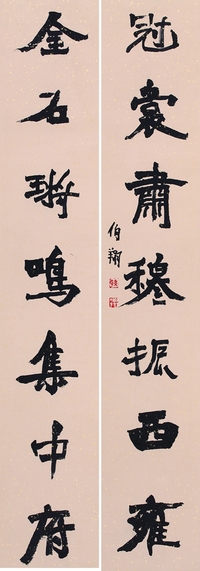 冠裳肅穆振西雍
金石鳴集中府
伯翔